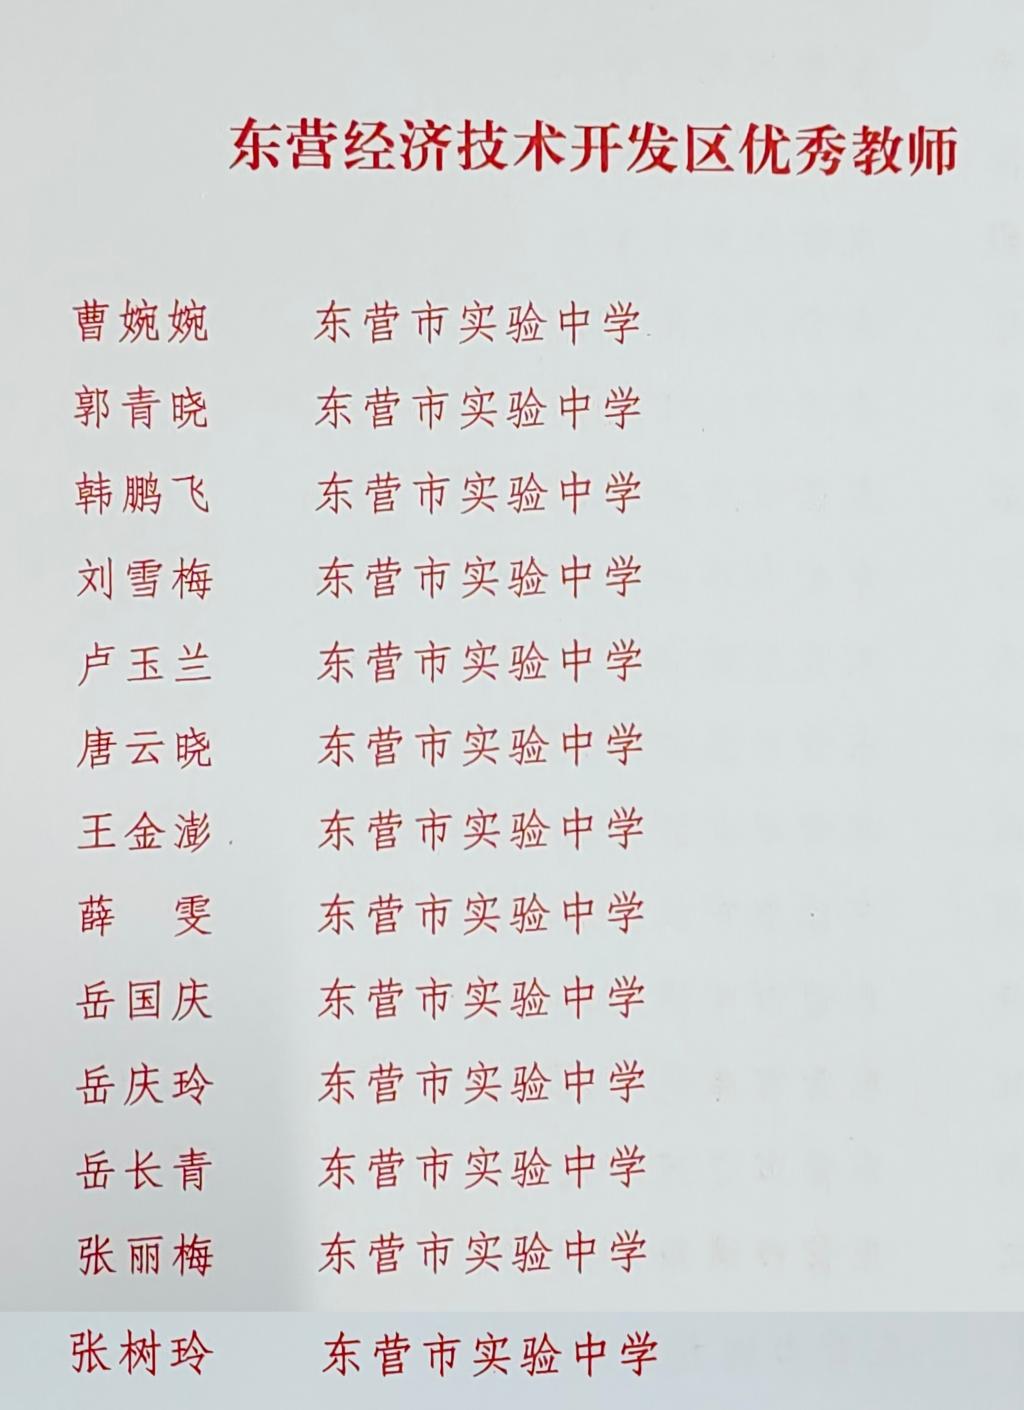 东营经济技术开发区优秀教师
曹婉婉 东营市实验中学
郭青晓 东营市实验中学
韩鹏飞 东营市实验中学
刘雪梅 东营市实验中学
卢玉兰 东营市实验中学
唐云晓 东营市实验中学
王金澎 东营市实验中学
薛 雯 东营市实验中学
岳国庆 东营市实验中学
岳庆玲 东营市实验中学
岳长青 东营市实验中学
张丽梅 东营市实验中学
张树玲 东营市实验中学